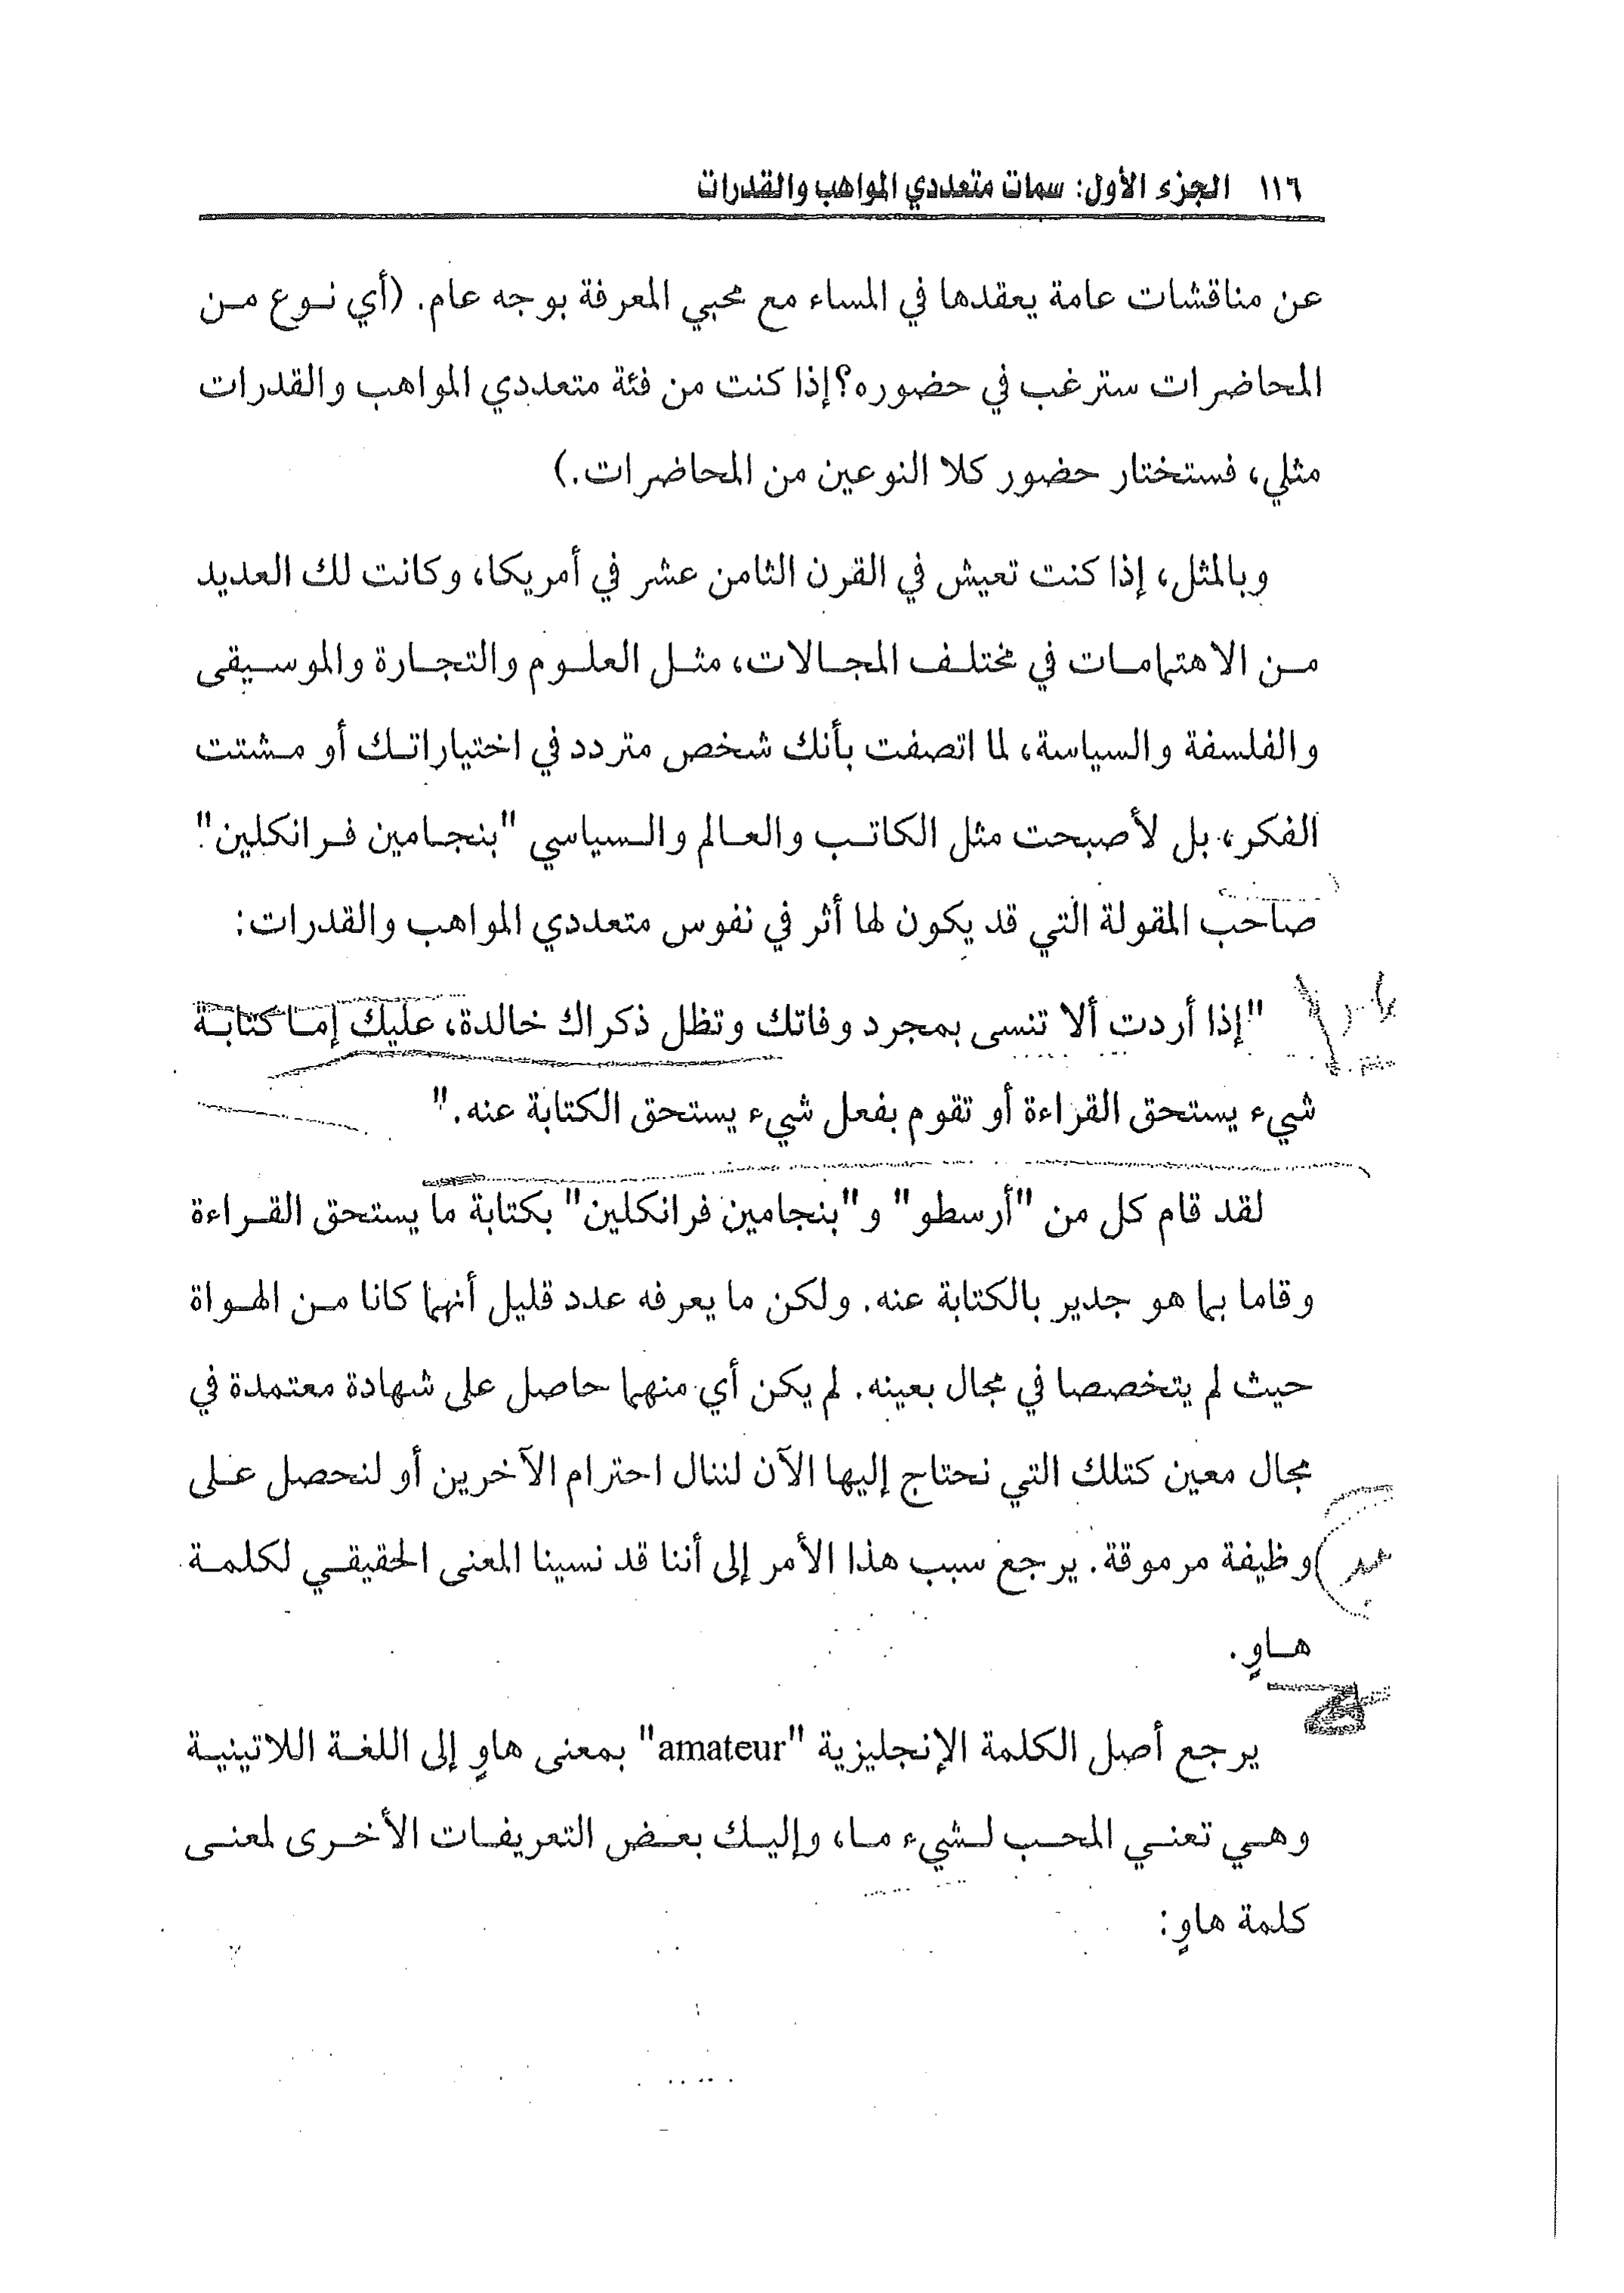 ١١٦ الجزء الأول: سمات متعددي المواهب والقدرات
عن مناقشات عامة يعقدها في المساء مع محبي المعرفة بوجه عام. (أي نوع من
المحاضرات سترغب في حضوره؟ إذا كنت من فئة متعددي المواهب والقدرات
مثلي، فستختار حضور كلا النوعين من المحاضرات.)
وبالمثل، إذا كنت تعيش في القرن الثامن عشر في أمريكا، وكانت لك العديد
من الاهتمامات في مختلف المجالات، مثل العلوم والتجارة والموسيقى
والفلسفة والسياسة، لما اتصفت بأنك شخص متردد في اختياراتك أو مشتت
الفكر، بل لأصبحت مثل الكاتب والعالم والسياسي "بنجامين فرانكلين".
صاحب المقولة التي قد يكون لها أثر في نفوس متعددي المواهب والقدرات:
"إذا أردت ألا تنسى بمجرد وفاتك وتظل ذكراك خالدة، عليك إما كتابة
شيء يستحق القراءة أو تقوم بفعل شيء يستحق الكتابة عنه."
لقد قام كل من "أرسطو" و"بنجامين فرانكلين" بكتابة ما يستحق القراءة
وقاما بما هو جدير بالكتابة عنه. ولكن ما يعرفه عدد قليل أنهما كانا من الهواة
حيث لم يتخصصا في مجال بعينه. لم يكن أي منهما حاصل على شهادة معتمدة في
مجال معين كتلك التي نحتاج إليها الآن لننال احترام الآخرين أو لنحصل على
وظيفة مرموقة. يرجع سبب هذا الأمر إلى أننا قد نسينا المعنى الحقيقي لكلمة
هاوٍ.
يرجع أصل الكلمة الإنجليزية "amateur" بمعنى هاوٍ إلى اللغة اللاتينية
وهي تعني المحب لشيء ما، وإليك بعض التعريفات الأخرى لمعنى
كلمة هاوٍ: